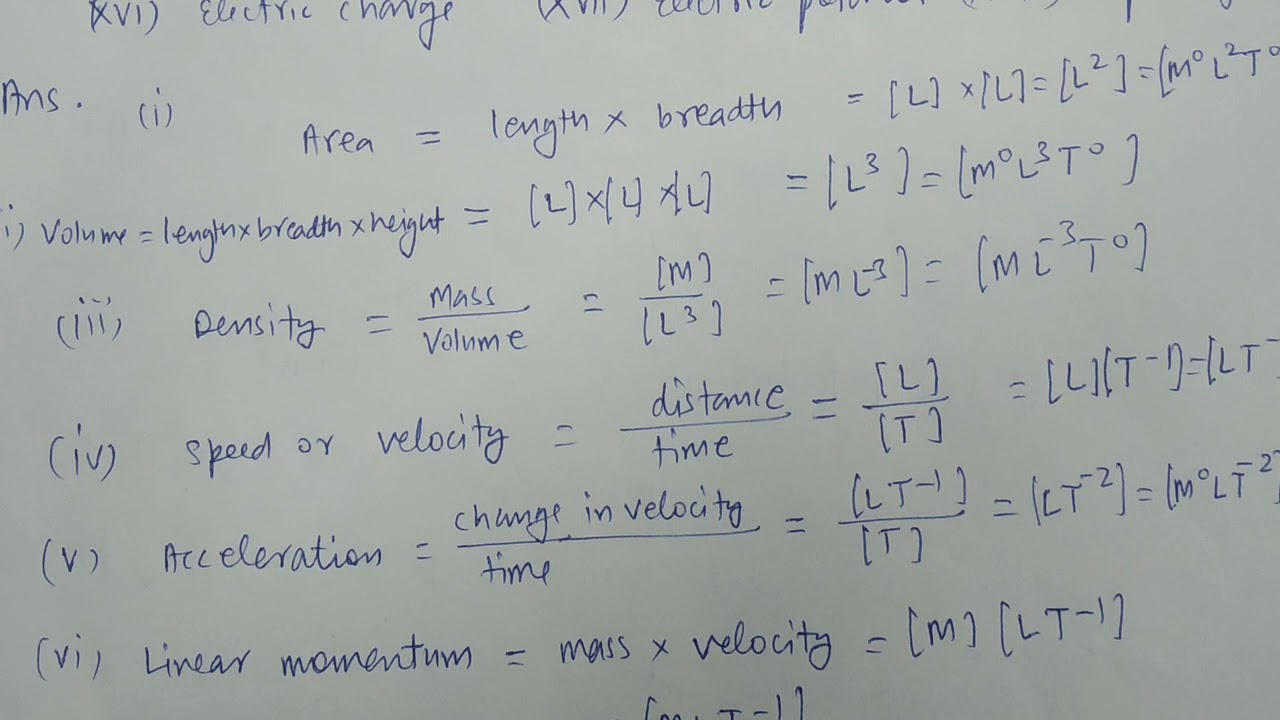 xvi) Electric change (xvii) Electric
Ans. (i) Area = length x breadth = [L] x [L] = [L²] = [M⁰L²T⁰
i) Volume = length x breadth x height = [L] x [L] x [L] = [L³] = [M⁰L³T⁰]
(iii) Density = Mass/Volume = [M]/[L³] = [ML⁻³] = [ML⁻³T⁰]
(iv) Speed or velocity = distance/time = [L]/[T] = [L][T⁻¹] = [LT⁻
(v) Acceleration = change in velocity/time = [LT⁻¹]/[T] = [LT⁻²] = [M⁰LT⁻²]
(vi) Linear momentum = mass x velocity = [M] [LT⁻¹]